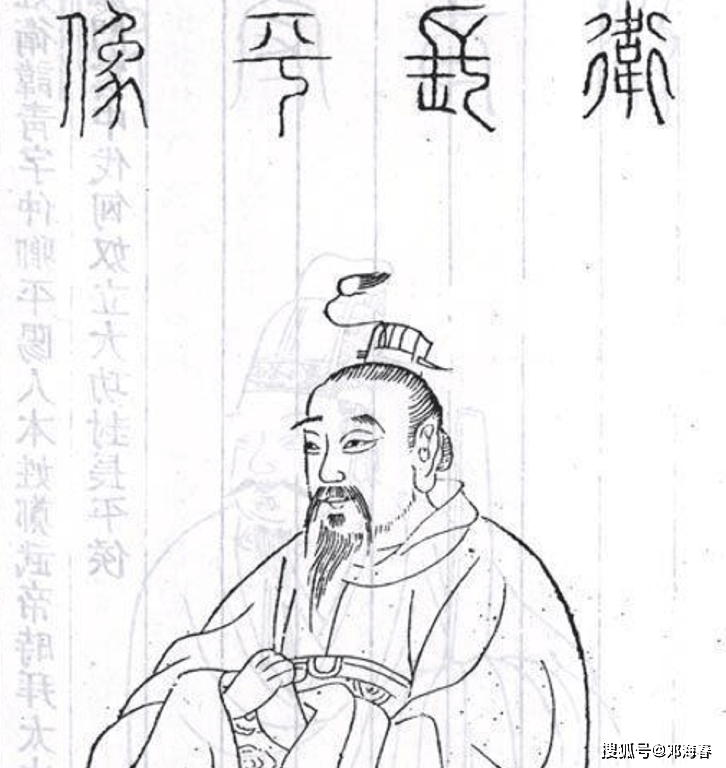 衛長平像
衛諱青字仲卿平陽人本姓鄭武帝時拜太
伐匈奴立大功封長平侯
搜狐号@邓海春